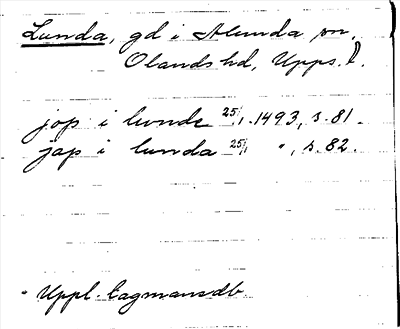 Lunda, gd i Alunda sn,
Olands hd, Upps. l.
jop i lunde 25/1 1493, s. 81.
jap i lunda 25/1 ", s. 82.
Uppl. lagmansdb.